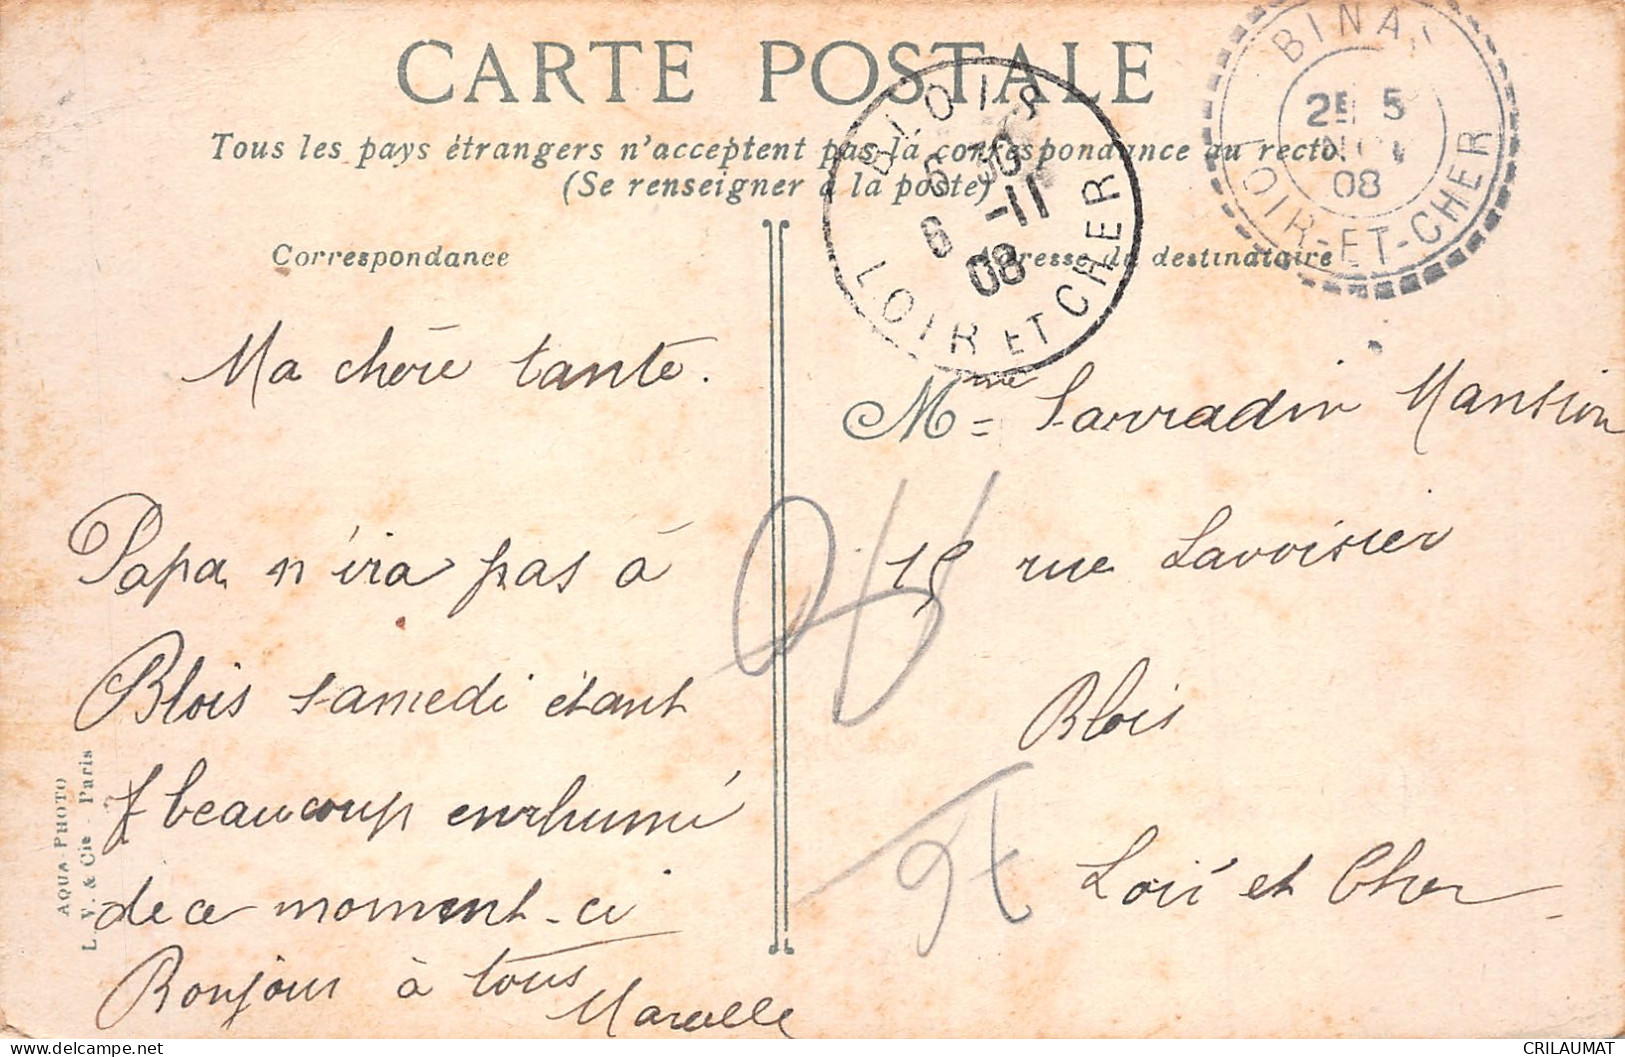 CARTE POSTALE
Tous les pays étrangers n'acceptent pas là correspondance au recto.
(Se renseigner à la poste)
BLOIS
6 30 S
6 -11
08
LOIR ET CHER
BINAS
2E 5
NOV
08
LOIR-ET-CHER
Correspondance
Adresse du destinataire
Ma chère tante.
Papa n'ira pas à
Blois samedi étant
beaucoup enrhumé
de ce moment-ci
Bonjour à tous
Marcelle
Mme Sarradin Mansion
15 rue Lavoisier
Blois
Loir et Cher
AQUA-PHOTO
L. V. & Cie - Paris
CRILAUMAT